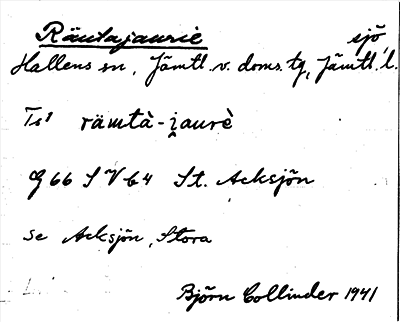 Rämtajaurie sjö
Hallens sn, Jämtl. v. doms. tg, Jämtl. l.
Ts¹ rämtà-i̯aurè
G 66 S V 64 St. Acksjön
se Acksjön, Stora
Björn Collinder 1941